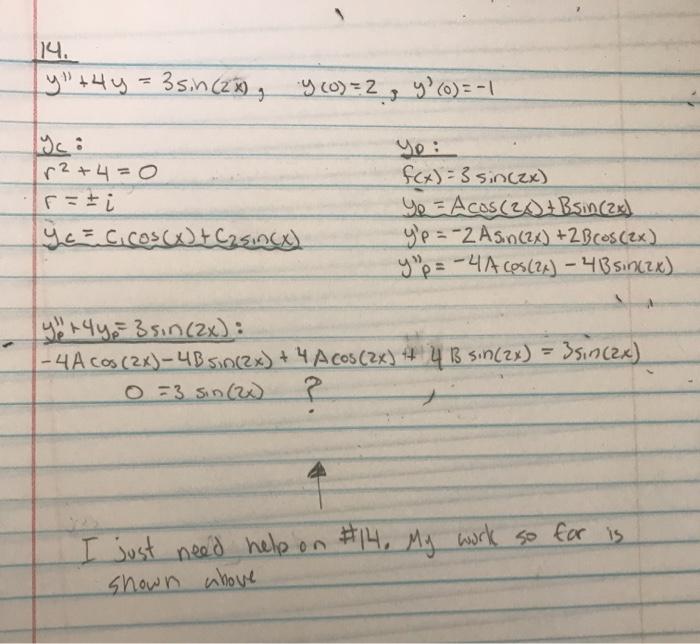 14.
y'' + 4y = 3sin(2x), y(0) = 2, y'(0) = -1
yc:
r² + 4 = 0
r = ± i
yc = c₁cos(x) + c₂sin(x)
yp:
f(x) = 3 sin(2x)
yp = Acos(2x) + Bsin(2x)
y'p = -2Asin(2x) + 2Bcos(2x)
y''p = -4A cos(2x) - 4B sin(2x)
yp'' + 4yp = 3sin(2x):
-4A cos(2x) - 4B sin(2x) + 4A cos(2x) + 4B sin(2x) = 3sin(2x)
0 = 3 sin(2x) ?
I just need help on #14. My work so far is
shown above